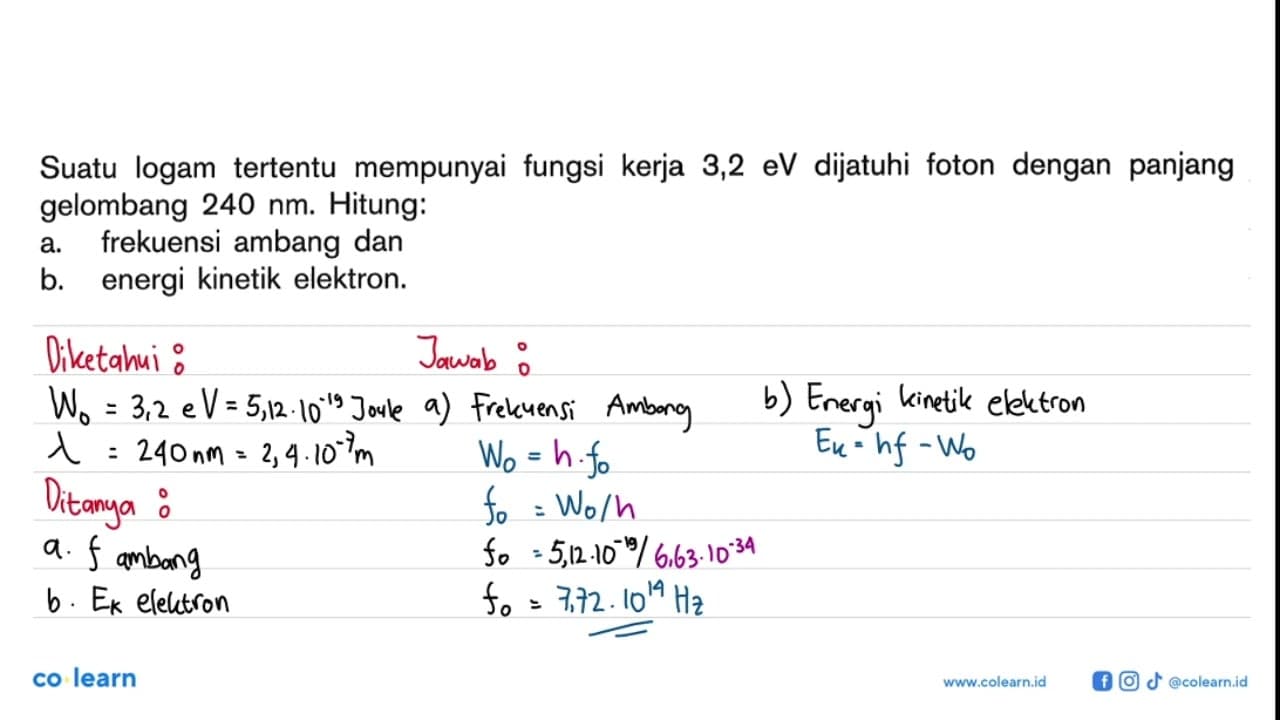 Suatu logam tertentu mempunyai fungsi kerja 3,2 eV dijatuhi foton dengan panjang
gelombang 240 nm. Hitung:
a. frekuensi ambang dan
b. energi kinetik elektron.
Diketahui :
W₀ = 3,2 eV = 5,12 . 10⁻¹⁹ Joule
λ = 240 nm = 2,4 . 10⁻⁷ m
Ditanya :
a. f ambang
b. Eₖ elektron
Jawab :
a) Frekuensi Ambang
W₀ = h . f₀
f₀ = W₀/h
f₀ = 5,12 . 10⁻¹⁹/6,63 . 10⁻³⁴
f₀ = 7,72 . 10¹⁴ Hz
b) Energi kinetik elektron
Eₖ = hf - W₀
co learn
www.colearn.id
@colearn.id